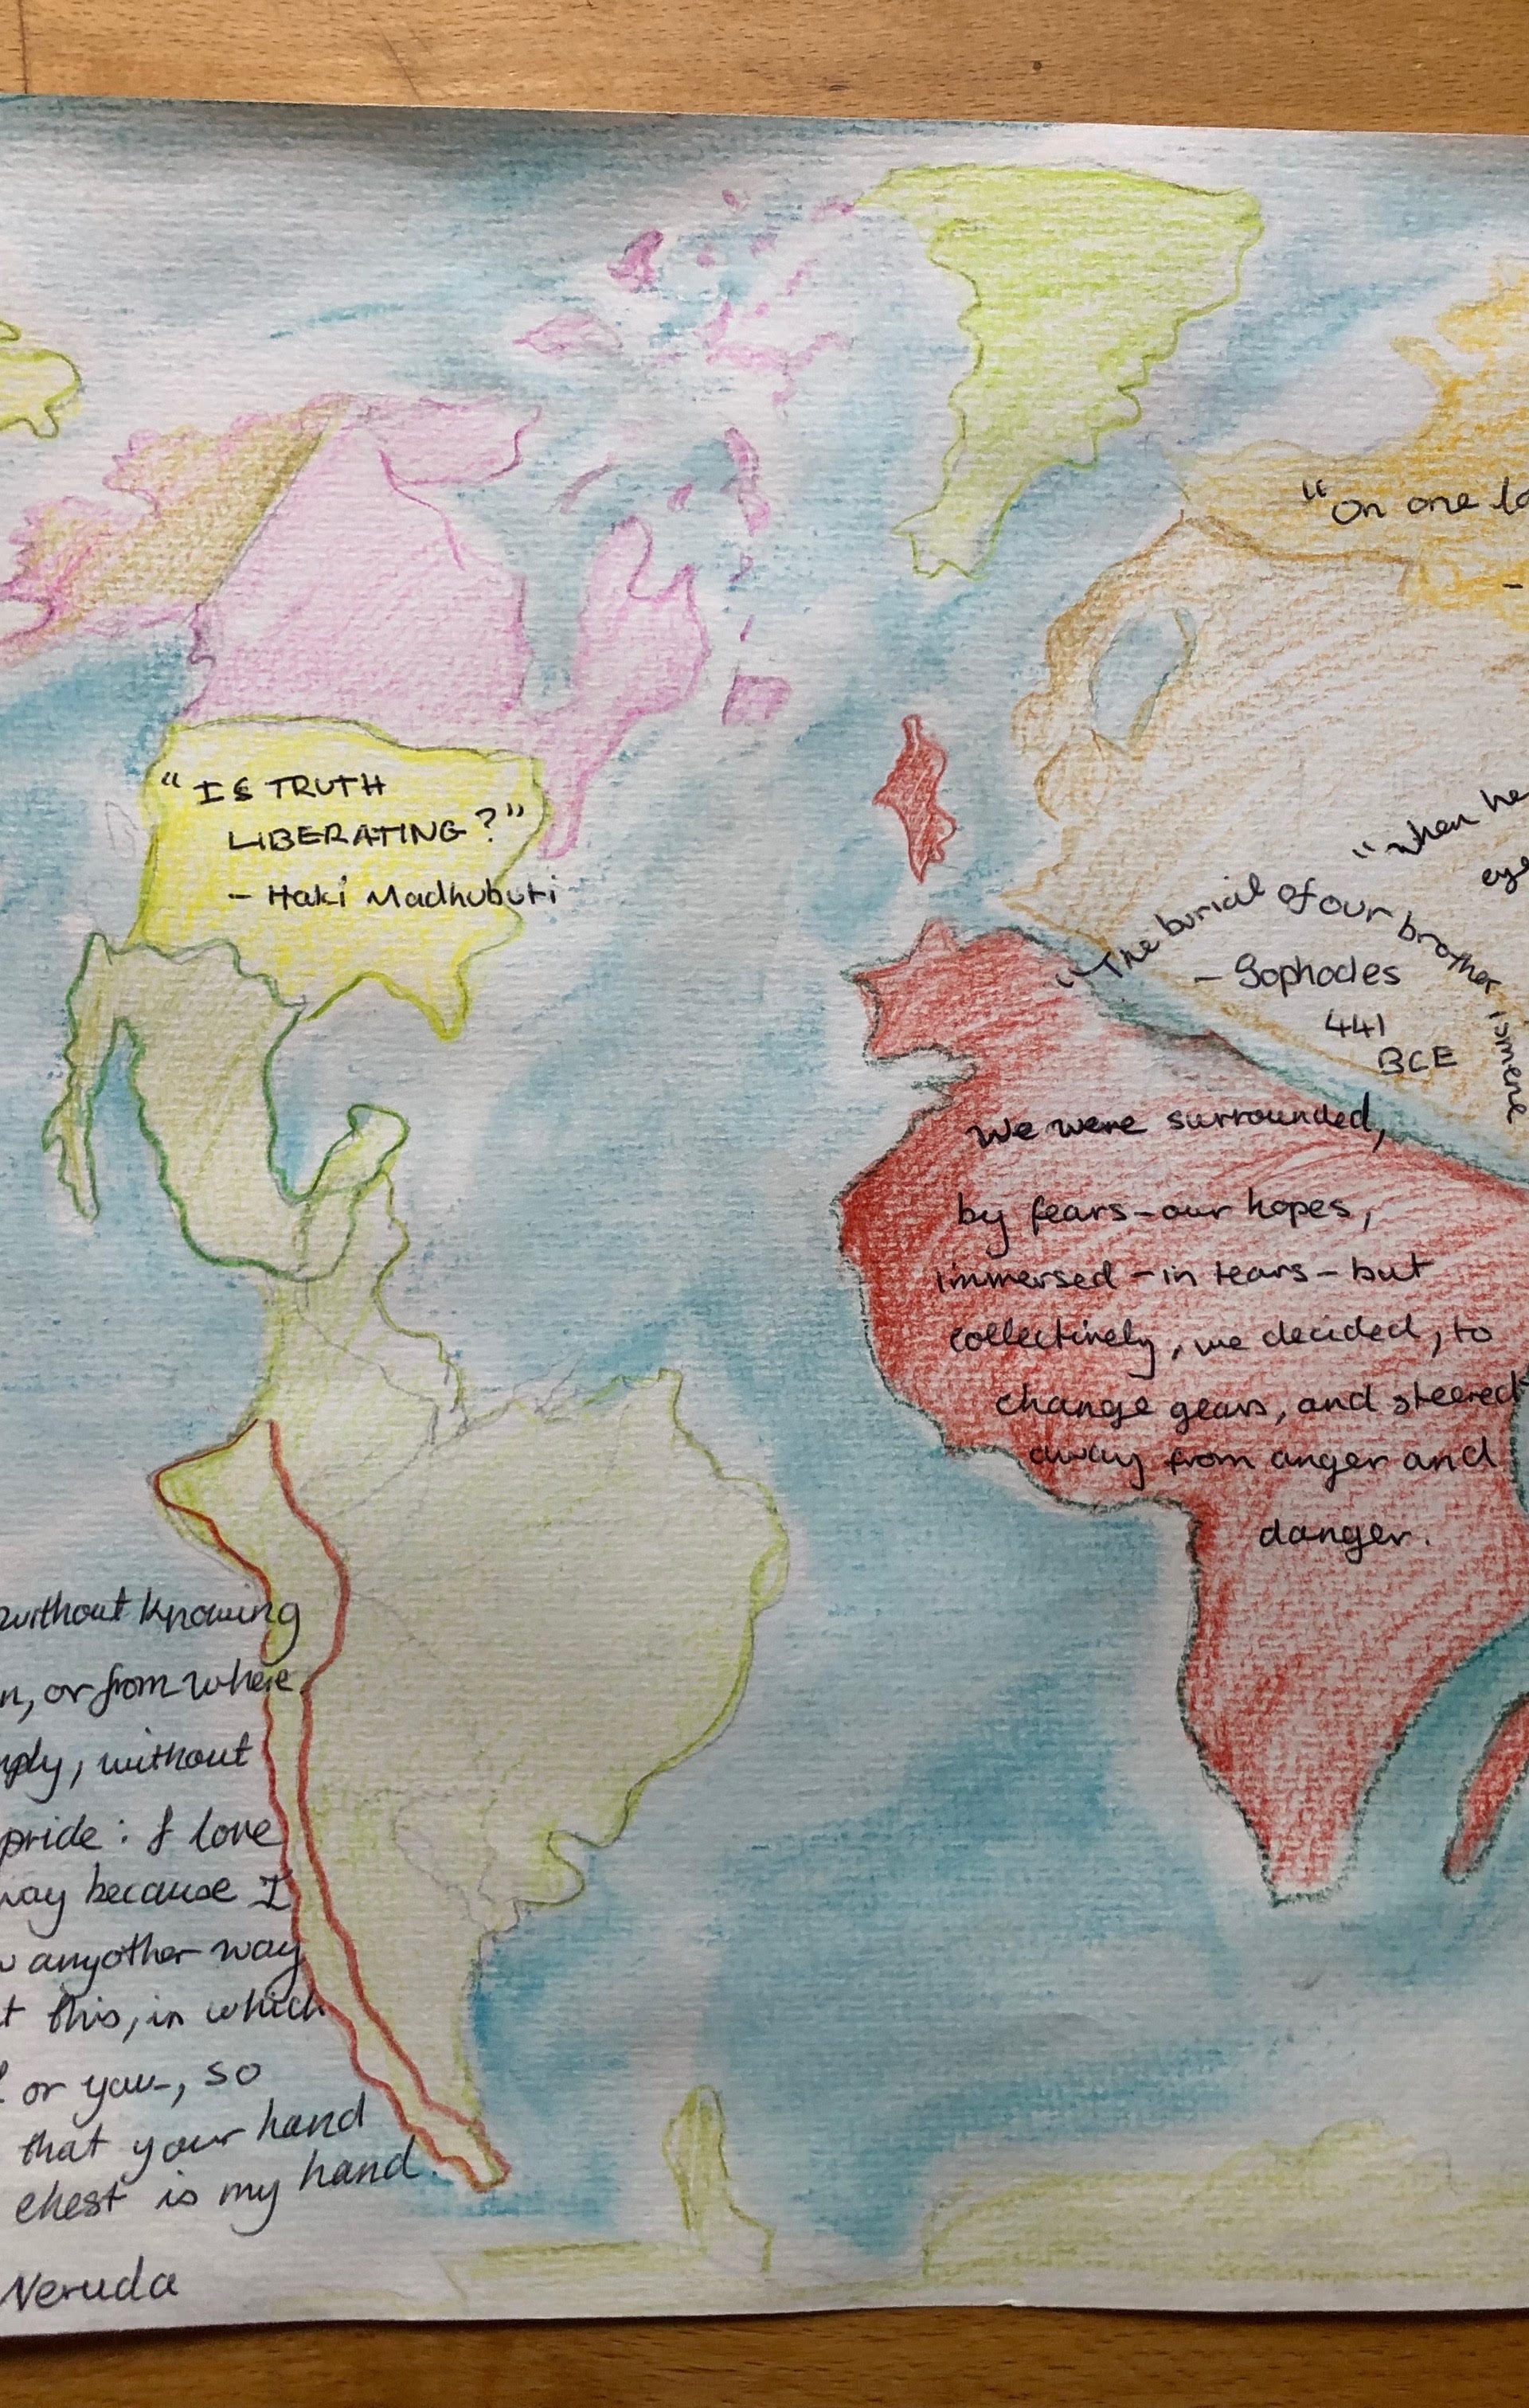 "On one
-
"IS TRUTH
LIBERATING?"
- Haki Madhubuti
"when he
"The burial of our brother Ismene
- Sophocles
441
BCE
We were surrounded,
by fears-our hopes,
immersed-in tears-but
collectively, we decided, to
change gears, and steered
away from anger and
danger.
without knowing
n, or from where
mply, without
pride: I love
way because I
w anyother way
t this, in which
I or you-, so
that your hand
chest is my hand.
Neruda